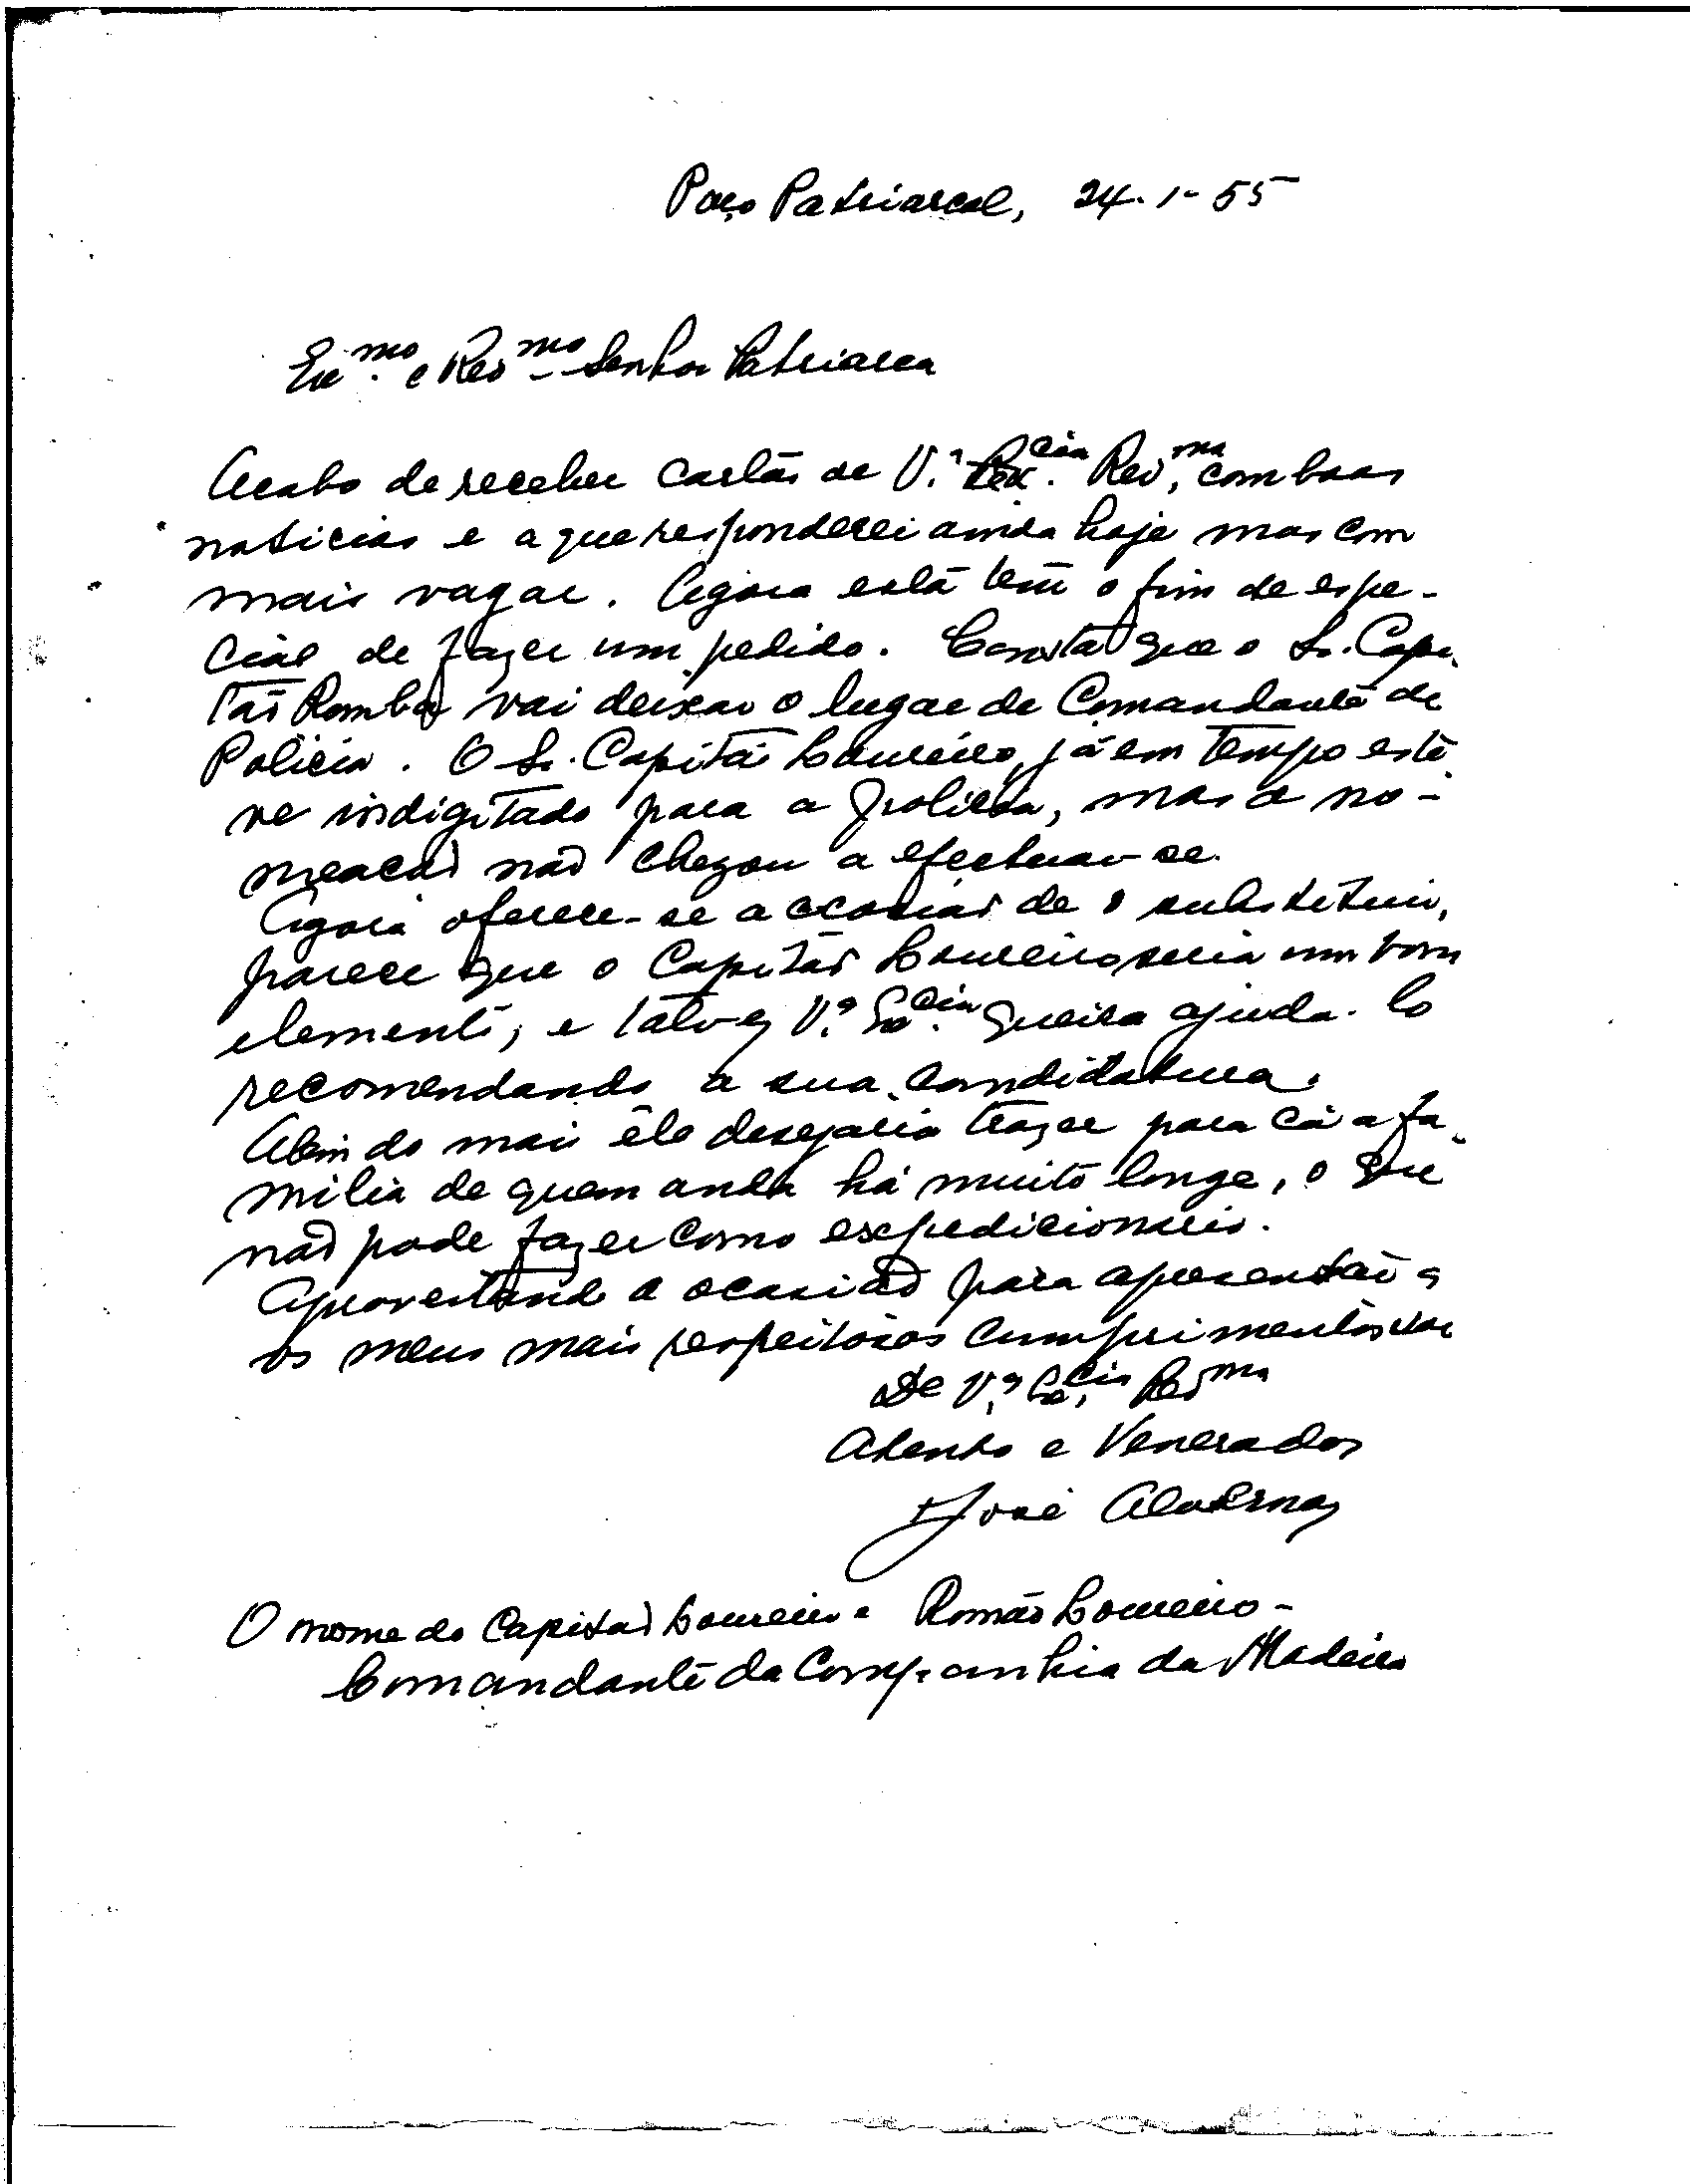 Paço Patriarcal, 24-1-55
Ex.mo e Rev.mo Senhor Patriarca
Acabo de receber cartão de V.ª Ex.cia Rev.ma, com boas
noticias e a que responderei ainda hoje mas com
mais vagar. Agora esta tem o fim de espe-
cial de fazer um pedido. Consta que o Sr. Capi-
tão Romba vai deixar o lugar de Comandante de
Policia. O Sr. Capitão Loureiro, já em tempo este-
ve indigitado para a policia, mas a no-
meação não chegou a efectuar-se.
Agora oferece-se a ocasião de o substituir,
parece que o Capitão Loureiro seria um bom
elemento, e talvez V.ª Ex.cia queira ajuda-lo
recomendando a sua candidatura.
Alem do mais êle desejaria trazer para cá a fa-
milia de quem anda há muito longe, o que
não pode fazer como expedicionario.
Aproveitando a ocasião para apresentar
os meus mais respeitosos cumprimentos
De V.ª Ex.cia Rev.ma
Atento e Venerador
+José Alvernaz
O nome do Capitão Loureiro é Romão Loureiro -
Comandante da Companhia da Madeira